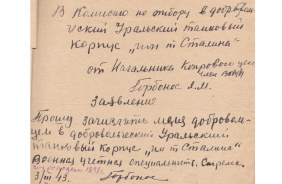 В Комисию по отбору в добровольче-
ский Уральский танковый
корпус „им т Сталина"
от Начальника Копрового цеха
член ВКП(б)
Горбонос А.М.
Заявление
Прошу зачислить меня добровол-
цем в добровольческий Уральский
танковый корпус „им т Сталина"
Военная учетная специальность
год рождения
3/III 43. Горбонос